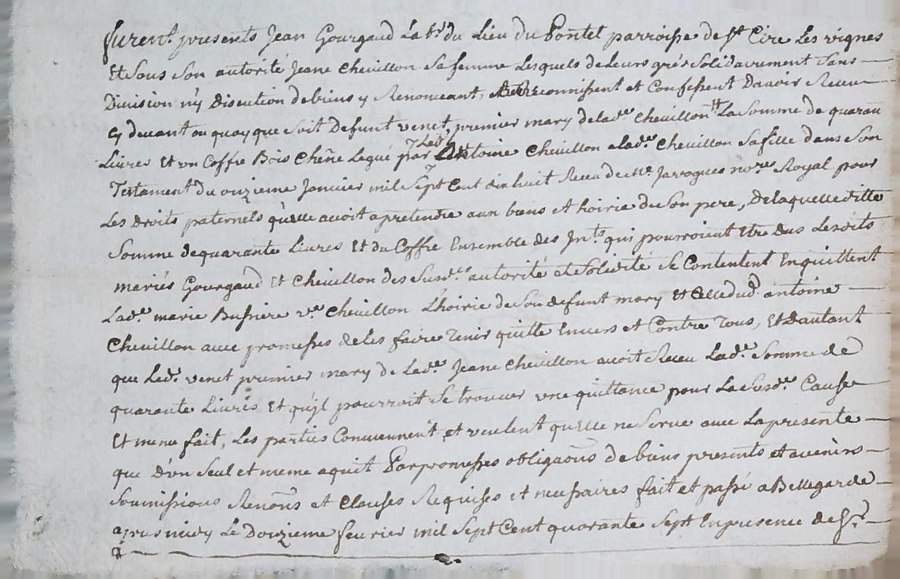 furent presents Jean Gourgaud Lab.r du Lieu du Pontet parroisse de St Cire Les vignes
Et sous son autorité Jeane Chevillon sa femme Lesquels de leurs grés solidairement sans
Division n'y Discution de biens y Renonceant, Reconnissent et Confessent Davoir Receu
Cy devant ou quoy que soit Defunt venet, premier mary de lad.e Chevillon La somme de quarante
Livres Et un Coffre Bois Chêne Legué par Led. Antoine Chevillon a lad.e Chevillon sa fille dans son
Testament du onzieme Janvier mil sept Cent dix huit Receu de Me Jarrogues no.re Royal pour
Les droits paternels qu'elle avoit a pretendre aux biens et hoirie de son pere, De laquelle ditte
Somme de quarante Livres Et du Coffre Ensemble des Jnts. qui pourroient Etre dus Lesdits
mariés Gourgaud Et Chevillon des susd.es autorité et Solidité se Contentent En quittent
Lad.e marie Bussiere v.ve Chevillon L'hoirie de son defunt mary Et Celle dud. antoine
Chevillon avec promesses de les faire Tenir quitte Envers et Contre Tous, Et Dautant
que Led. venet premier mary de Lad.e Jeane Chevillon avoit Receu Lad.e Somme de
quarante Livres Et qu'jl pourroit se trouver une quittance pour La susd.e Cause
Et meme fait, Les parties Conviennent et veulent qu'elle ne serve avec La presente
que d'un seul et meme aquit Par promesses obligaons de biens presents et avenirs
Soumissions Renons et Clauses Requises et necessaires fait et passé a Bellegarde
apres midy Le Douzieme fevrier mil sept Cent quarante sept En presence de Sr